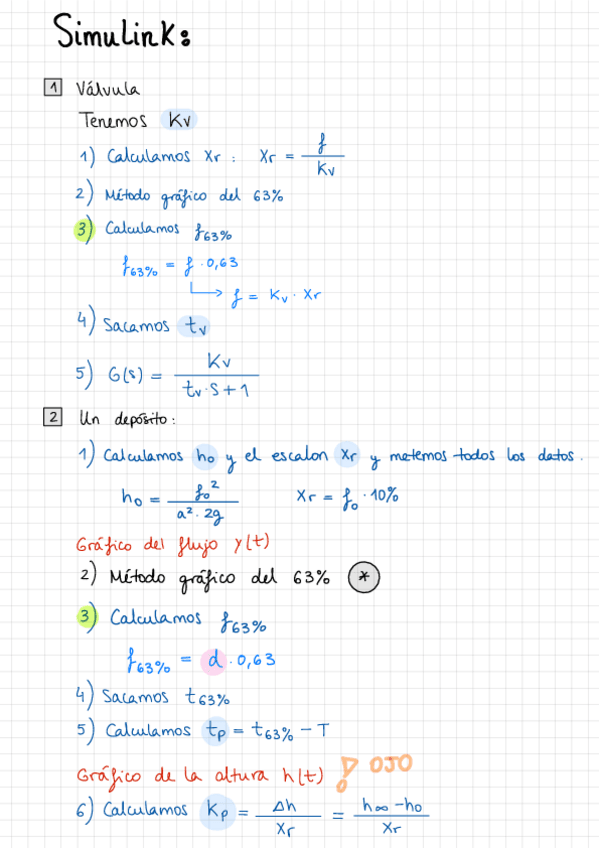 Simulink:
1 Válvula
Tenemos Kv
1) Calculamos Xr : Xr = f / Kv
2) Método gráfico del 63%
3) Calculamos f63%
f63% = f · 0,63
f = Kv · Xr
4) Sacamos tv
5) G(s) = Kv / tv·S+1
2 Un depósito:
1) Calculamos ho y el escalon Xr y metemos todos los datos.
ho = fo² / a²·2g Xr = fo · 10%
Gráfico del flujo y(t)
2) Método gráfico del 63% *
3) Calculamos f63%
f63% = d · 0,63
4) Sacamos t63%
5) Calculamos tp = t63% - T
Gráfico de la altura h(t) ! OJO
6) Calculamos Kp = Δh / Xr = h∞ - ho / Xr